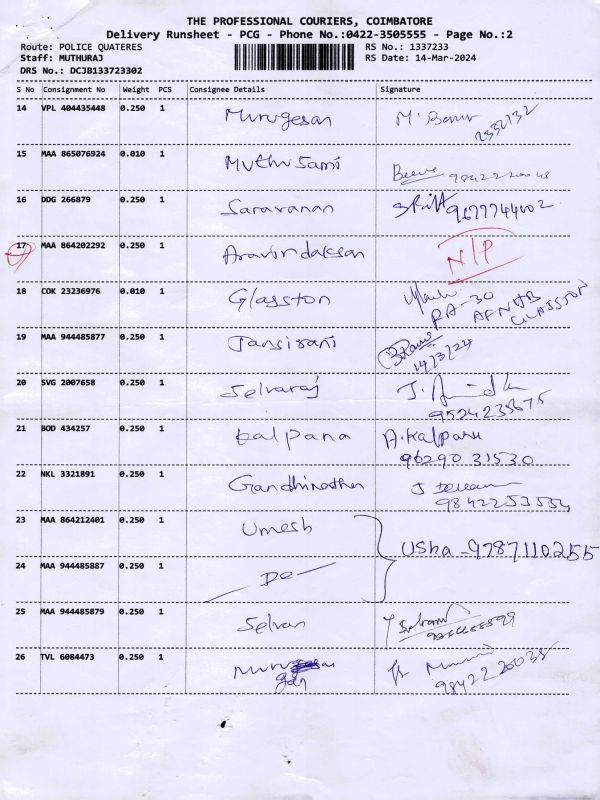 THE PROFESSIONAL COURIERS, COIMBATORE
Delivery Runsheet - PCG - Phone No.:0422-3505555 - Page No.:2
Route: POLICE QUATERES RS No.: 1337233
Staff: MUTHURAJ RS Date: 14-Mar-2024
DRS No.: DCJB133723302
S No Consignment No Weight PCS Consignee Details Signature
14 VPL 404435448 0.250 1 Murugesan
15 MAA 865076924 0.010 1 Muthusami
16 DDG 266879 0.250 1 Saravanan 9677744002
17 MAA 864202292 0.250 1 Aravindaksan N/P
18 COK 23236976 0.010 1 Glasston
19 MAA 944485877 0.250 1 Jansirani 14/3/24
20 SVG 2007658 0.250 1 Selvaraj
9524235675
21 BOD 434257 0.250 1 Kalpana A.Kalpana
96290 31530
22 NKL 3321891 0.250 1 Gandhinathan
9842253534
23 MAA 864212401 0.250 1 Umesh
Usha - 9787110255
24 MAA 944485887 0.250 1 - Do -
25 MAA 944485879 0.250 1 Selvan
26 TVL 6084473 0.250 1
9842220038